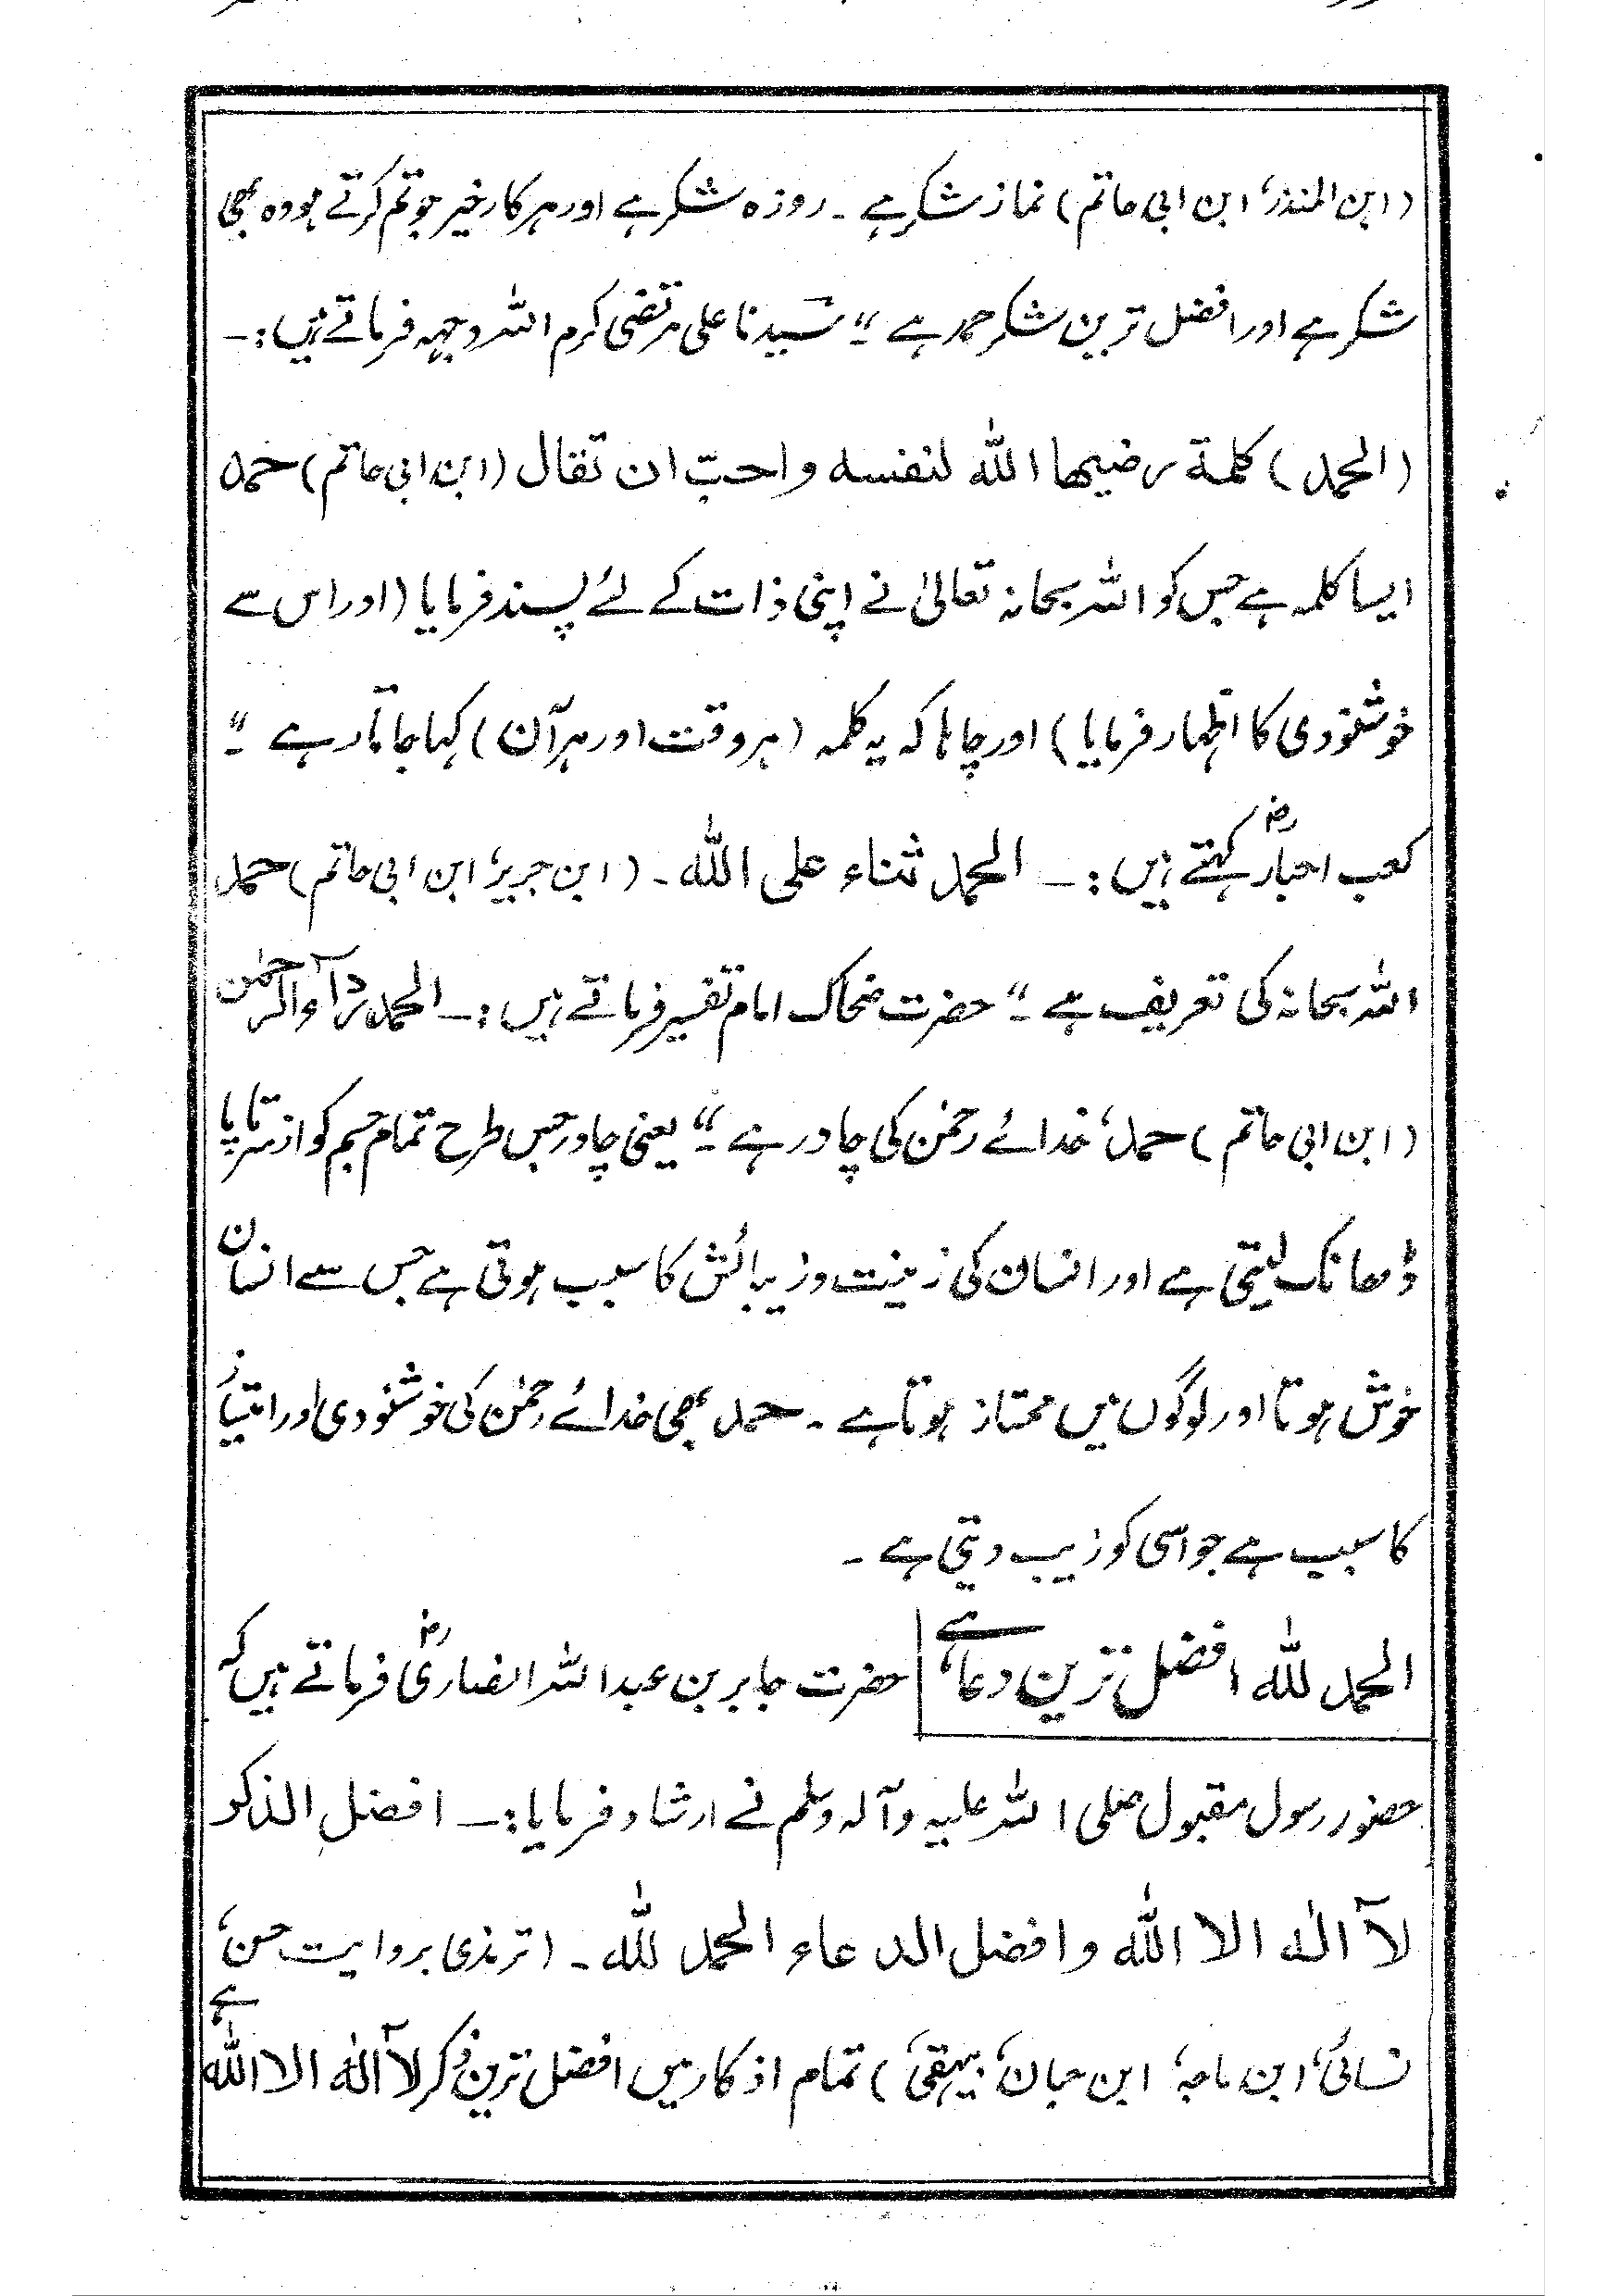 (ابن المنذر، ابن ابی حاتم) نماز شکر ہے ۔ روزہ شکر ہے اور ہر کار خیر جو تم کرتے ہو وہ بھی
شکر ہے اور افضل ترین شکر حمد ہے ۔" سیدنا علی مرتضی کرم اللہ وجہہ فرماتے ہیں :۔
(الحمد) کلمۃ رضیھا اللہ لنفسہ واحبّ ان تقال (ابن ابی حاتم) حمد
ایسا کلمہ ہے جس کو اللہ سبحانہ تعالیٰ نے اپنی ذات کے لئے پسند فرمایا (اور اس سے
خوشنودی کا اظہار فرمایا) اور چاہا کہ یہ کلمہ (ہر وقت اور ہر آن) کہا جاتا رہے ۔"
کعب احبارؓ کہتے ہیں :۔ الحمد ثناء علی اللہ ۔ (ابن جریر، ابن ابی حاتم) حمد
اللہ سبحانہ کی تعریف ہے ۔" حضرت ضحاک امام تفسیر فرماتے ہیں :۔ الحمد ردآء الرحمٰن
(ابن ابی حاتم) حمد، خدائے رحمٰن کی چادر ہے ۔" یعنی چادر جس طرح تمام جسم کو از سر تا پا
ڈھانک لیتی ہے اور انسان کی زینت و زیبائش کا سبب ہوتی ہے جس سے انسان
خوش ہوتا اور لوگوں میں ممتاز ہوتا ہے ۔ حمد بھی خدائے رحمٰن کی خوشنودی اور امتیاز
کا سبب ہے جو اسی کو زیب دیتی ہے ۔
الحمد للہ افضل ترین دعاء ہے حضرت جابر بن عبد اللہ انصاریؓ فرماتے ہیں کہ
حضور رسول مقبول صلی اللہ علیہ وآلہ وسلم نے ارشاد فرمایا :۔ افضل الذکر
لآ الٰہ الا اللہ وافضل الدعاء الحمد للہ ۔ (ترمذی بروایت حسن،
نسائی، ابن ماجہ، ابن حبان، بیہقی،) تمام اذکار میں افضل ترین ذکر لآ الٰہ الا اللہ ہے